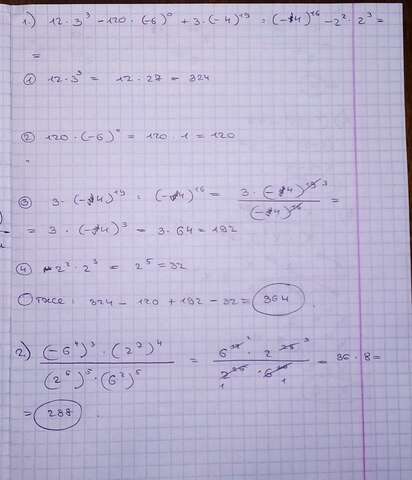 1.) 12 · 3³ - 120 · (-6)⁰ + 3 · (-4)¹⁹ : (-4)¹⁶ - 2² · 2³ =
=
① 12 · 3³ = 12 · 27 = 324
② 120 · (-6)⁰ = 120 · 1 = 120
③ 3 · (-4)¹⁹ : (-4)¹⁶ = 3 · (-4)¹⁹ ³ / (-4)¹⁶ =
= 3 · (-4)³ = 3 · 64 = 192
④ 2² · 2³ = 2⁵ = 32
Отже: 324 - 120 + 192 - 32 = 364
2) (-6⁴)³ · (2⁷)⁴ / (2⁵)⁵ · (6²)⁵ = 6¹² ² · 2²⁸ ³ / 2²⁵ · 6¹⁰ = 36 · 8 =
1 1
= 288